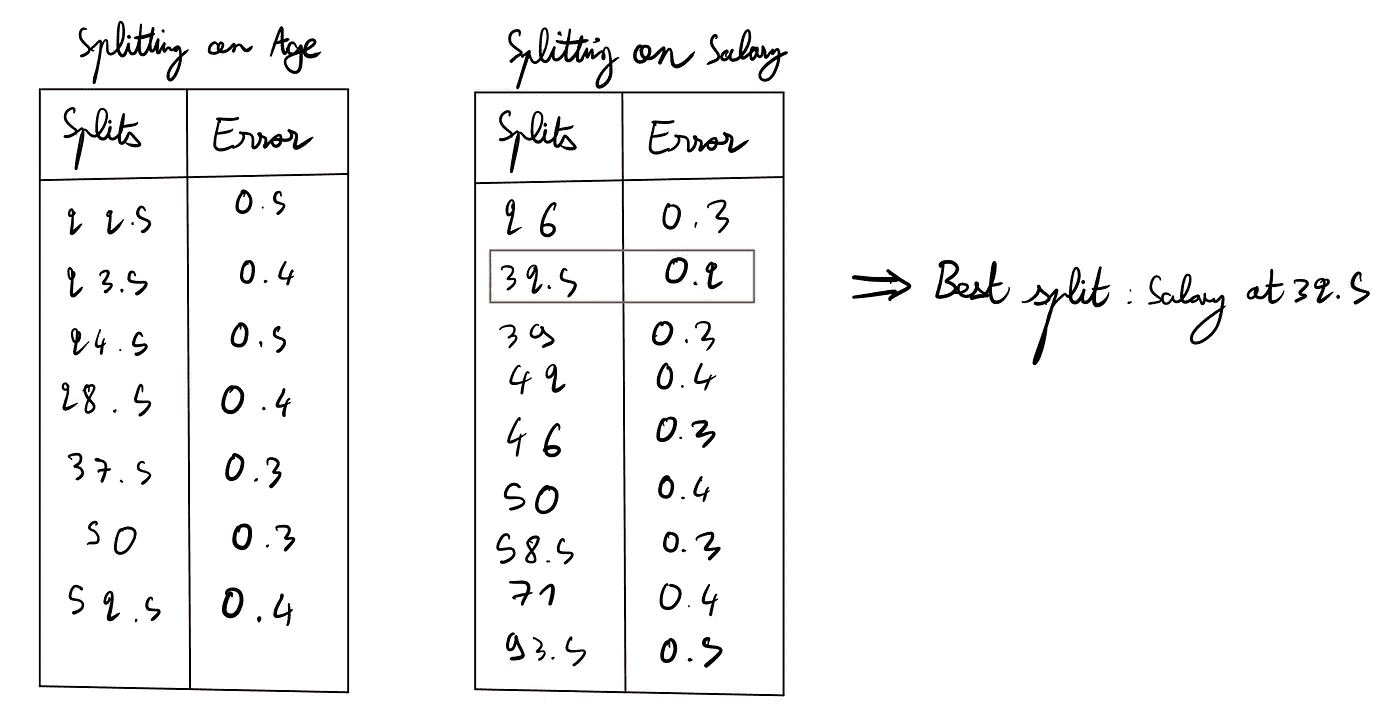 Splitting on Age
Splits Error
22.5 0.5
23.5 0.4
24.5 0.5
28.5 0.4
37.5 0.3
50 0.3
52.5 0.4
Splitting on Salary
Splits Error
26 0.3
32.5 0.2
39 0.3
42 0.4
46 0.3
50 0.4
58.5 0.3
71 0.4
93.5 0.5
⇒ Best split : Salary at 32.5